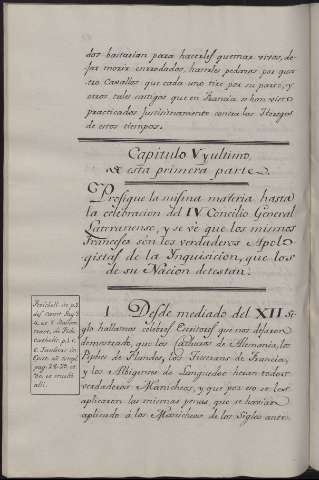 dos bastarian para hacerles quemar vivos, de-
jar morir enrodados, hacerles pedazos por qua-
tro Cavallos que cada uno tire por su parte, y
otros tales castigos que en Francia se han visto
practicados justisimamente contra los Hereges
de estos tiempos.
Capitulo V y ultimo
de esta primera parte.
Prosigue la misma materia hasta
la celebracion del IV Concilio General
Lateranense, y se ve que los mismos
Franceses son los verdaderos Apolo-
gistas de la Inquisicion, que los
de su Nacion detestan.
1. Desde mediado del XII Si-
glo hallamos celebres Escritores que nos dejaron
demostrado, que los Catharos de Alemania, los
Piphles de Flandes, los Tixerans de Francia,
y los Albigenses de Languedoc heran todos
verdaderos Manicheos, y que por eso se les
aplicaron las mismas penas, que se havian
aplicado à los Manicheos de los Siglos ante-